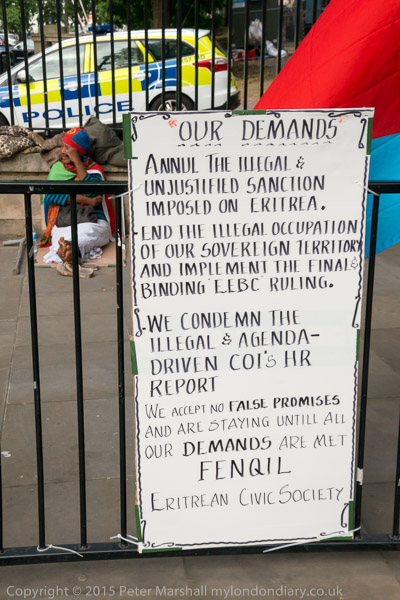 POLICE
"OUR DEMANDS"
ANNUL THE ILLEGAL &
UNJUSTIFIED SANCTION
IMPOSED ON ERITREA.
-END THE ILLEGAL OCCUPATION
OF OUR SOVEREIGN TERRITORY
AND IMPLEMENT THE FINAL &
BINDING 'EEBC' RULING.
-WE CONDEMN THE
ILLEGAL & AGENDA-
DRIVEN COI'S HR
REPORT
WE ACCEPT NO FALSE PROMISES
AND ARE STAYING UNTILL ALL
OUR DEMANDS ARE MET
FENQIL
ERITREAN CIVIC SOCIETY
Copyright © 2015 Peter Marshall mylondondiary.co.uk